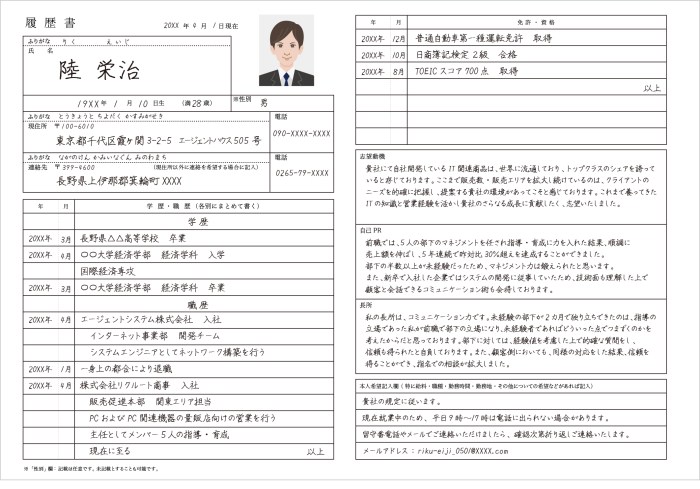 履歴書
20XX 年 4 月 1 日現在
ふりがな りく えいじ
氏 名
陸 栄治
19XX年 1 月 10 日生 (満 28 歳)
※性別 男
ふりがな とうきょうと ちよだく かすみがせき
電話
現住所 〒100-6010
090-XXXX-XXXX
東京都千代区霞ヶ関 3-2-5 エージェントハウス 505 号
ふりがな ながのけん かみいなぐん みのわまち
電話
連絡先 〒399-4600 (現住所以外に連絡を希望する場合に記入)
0265-79-XXXX
長野県上伊那郡箕輪町 XXXX
年 月 学歴・職歴 (各別にまとめて書く)
学 歴
20XX年 3月 長野県△△高等学校 卒業
20XX年 4月 〇〇大学経済学部 経済学科 入学
国際経済専攻
20XX年 3月 〇〇大学経済学部 経済学科 卒業
職歴
20XX年 4月 エージェントシステム株式会社 入社
インターネット事業部 開発チーム
システムエンジニアとしてネットワーク構築を行う
20XX年 1月 一身上の都合により退職
20XX年 4月 株式会社リクルート商事 入社
販売促進本部 関東エリア担当
PC および PC 関連機器の量販店向けの営業を行う
主任としてメンバー 5 人の指導・育成
現在に至る 以上
※「性別」欄:記載は任意です。未記載とすることも可能です。
年 月 免許・資格
20XX年 12月 普通自動車第一種運転免許 取得
20XX年 10月 日商簿記検定 2級 合格
20XX年 8月 TOEIC スコア 700 点 取得
以上
志望動機
貴社にて自社開発している IT 関連商品は、世界に流通しており、トップクラスのシェアを誇って
いると存じております。ここまで販売数・販売エリアを拡大し続けているのは、クライアントの
ニーズを的確に把握し、提案する貴社の環境があってこそと感じております。これまで養ってきた
ITの知識と営業経験を活かし貴社のさらなる成長に貢献したく、志望いたしました。
自己 PR
前職では、5人の部下のマネジメントを任され指導・育成に力を入れた結果、順調に
売上額を伸ばし、5 年連続で昨対比 30%超えを達成することができました。
部下の半数以上が未経験だったため、マネジメント力は鍛えられたと思います。
また、新卒で入社した企業ではシステムの開発に従事していたため、技術面も理解した上で
顧客と会話できるコミュニケーション術も会得しております。
長所
私の長所は、コミュニケーション力です。未経験の部下が 2 カ月で独り立ちできたのは、指導の
立場であった私が前職で部下の立場になり、未経験者であればどういった点でつまずくのかを
考えたからだと思っております。部下に対しては、経験値を考慮した上で的確な質問をし、
信頼も得られたと自負しております。また、顧客側においても、同様の対応をした結果、信頼を
得ることができ、指名での相談が拡大しました。
本人希望記入欄 (特に給料・職種・勤務時間・勤務地・その他についての希望などがあれば記入)
貴社の規定に従います。
現在就業中のため、平日 9 時〜17 時は電話に出られない場合があります。
留守番電話やメールでご連絡いただけましたら、確認次第折り返しご連絡いたします。
メールアドレス:riku-eiji_0501@XXXX.com